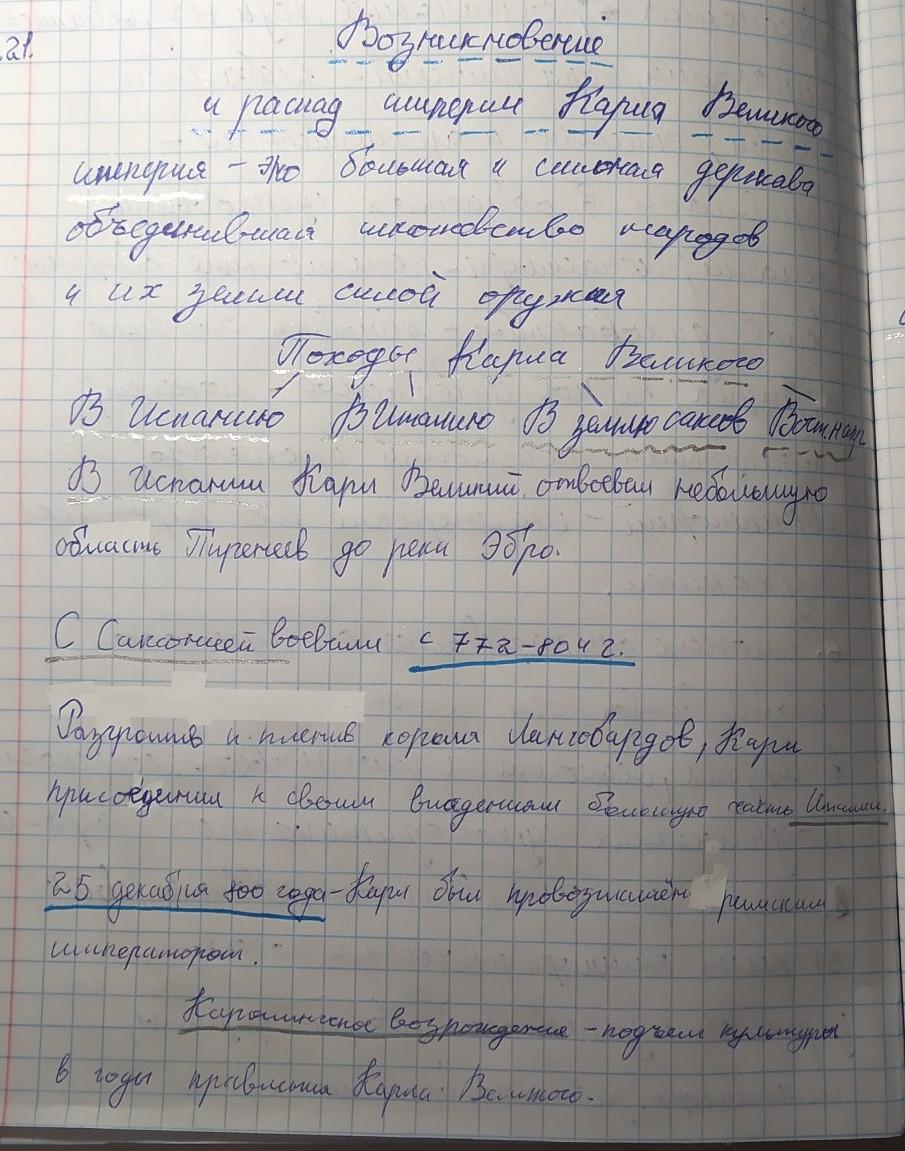 .21.
Возникновение
и распад империи Карла Великого
империя – это большая и сильная держава
объединившая множество народов
и их земли силой оружия
Походы Карла Великого
В Испанию В Италию В землю саксов Вост. напр.
В Испании Карл Великий отвоевал небольшую
область Пиренеев до реки Эбро.
С Саксонией воевали с 772-804 г.
Разгромив и пленив короля Лангобардов, Карл
присоединил к своим владениям большую часть Италии.
25 декабря 800 года – Карл был провозглашён римским
императором.
Каролингское возрождение – подъем культуры
в годы правления Карла Великого.